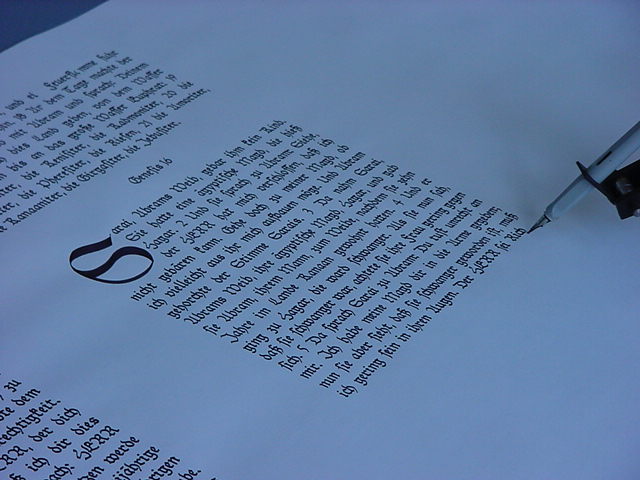 und ei fuhr
18 An dem Tage machte der
mit Abram und sprach: Deinem
dies Land geben von dem Wasser
bis an das große Wasser Euphrat: 19
die Keniter, die Kenisiter, die Kadmoniter, 20 die
die Pheresiter, die Riesen, 21 die Amoriter,
Kanaaniter, die Girgasiter, die Jebusiter.
Genesis 16
Sarai Abrams Weib gebar ihm kein Kind
Sie hatte eine ägyptische Magd, die hieß
Hagar. 2 Und sie sprach zu Abram: Siehe,
der HERR hat mich verschlossen, daß ich
nicht gebären kann. Gehe doch zu meiner Magd, ob
ich vielleicht aus ihr mich aufbauen möge. Und Abram
gehorchte der Stimme Sarais. 3 Da nahm Sarai
Abrams Weib, ihre ägyptische Magd, Hagar, und gab
sie Abram, ihrem Mann, zum Weibe, nachdem sie zehn
Jahre im Lande Kanaan gewohnt hatten. 4 Und er
ging zu Hagar, die ward schwanger. Als sie nun sah
daß sie schwanger war, achtete sie ihre Frau gering gegen
sich. 5 Da sprach Sarai zu Abram: Du tust unrecht an
mir. Ich habe meine Magd dir in die Arme gegeben
nun sie aber sieht, daß sie schwanger geworden ist, muß
ich gering sein in ihren Augen. Der HERR sei
7 zu
te dem
echtigkeit.
HERR, der dich
ß ich dir dies
ach: HERR
zen werde
ijährige
rigen
be.